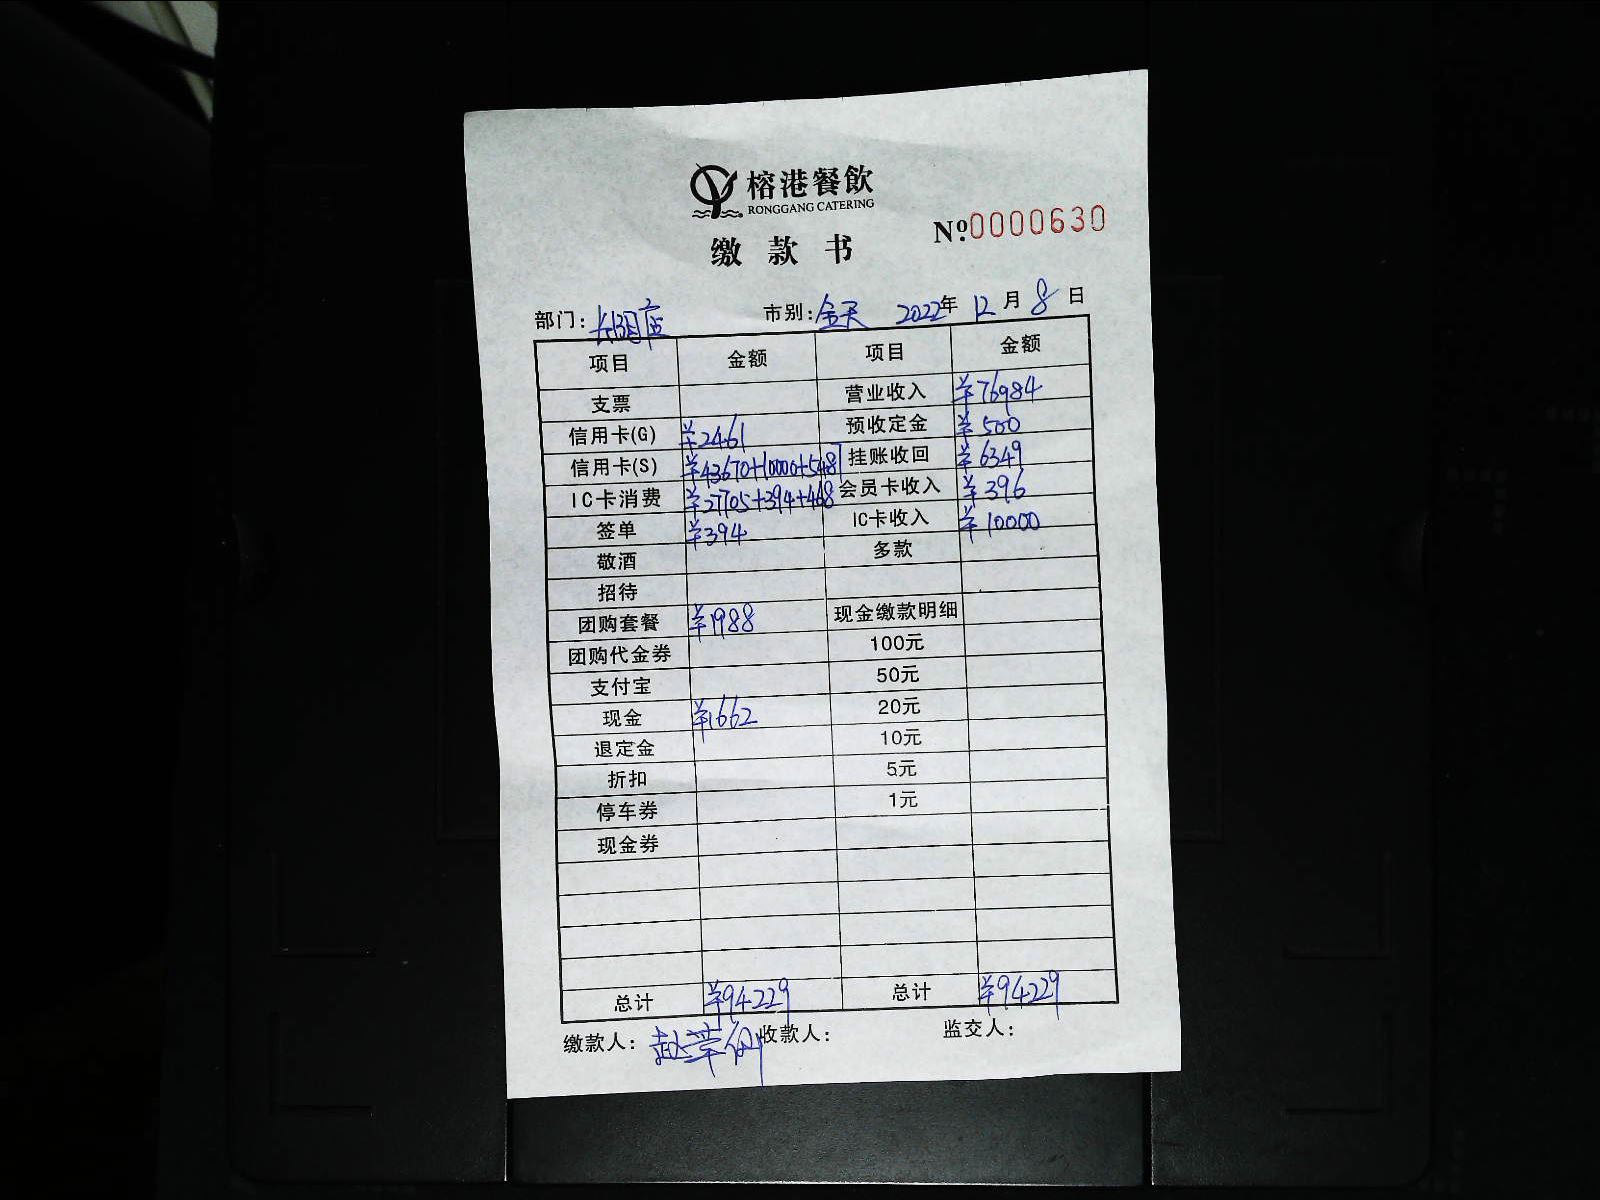 榕港餐飲
RONGGANG CATERING
缴款书
Nº.0000630
部门: 店 市别: 全天 2022年 12月 8日
项目 金额 项目 金额
支票 营业收入 ¥76984
信用卡(G) ¥2461 预收定金 ¥500
信用卡(S) ¥43670+10000+5487 挂账收回 ¥6349
IC卡消费 ¥27705+394+468 会员卡收入 ¥396
签单 ¥394 IC卡收入 ¥10000
敬酒 多款
招待
团购套餐 ¥1988 现金缴款明细
团购代金券 100元
支付宝 50元
现金 ¥1662 20元
退定金 10元
折扣 5元
停车券 1元
现金券
总计 ¥94229 总计 ¥94229
缴款人: 赵 收款人: 监交人: